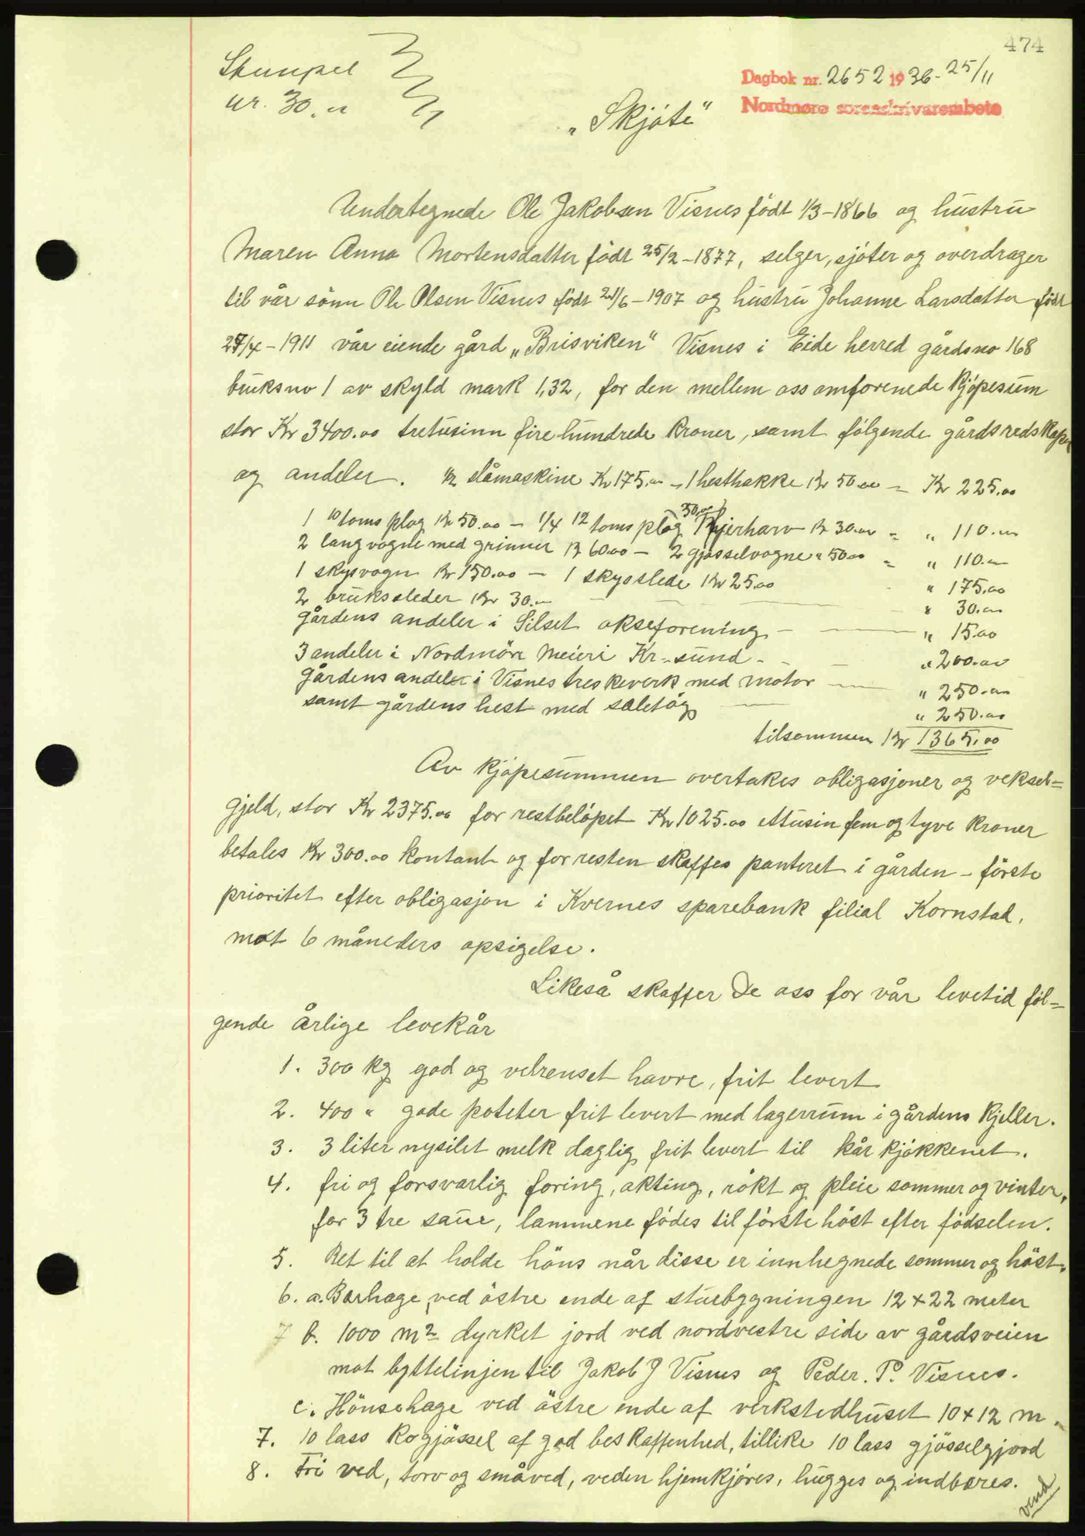 474
Stempel
kr. 30.00
Dagbok nr. 2652 1936 - 25/11
Nordmøre sorenskrivarembete
„Skjöte"
Undertegnede Ole Jakobsen Visnes född 1/3-1866 og hustru
Maren Anna Mortensdatter födt 25/2-1877, selger, sjöter og overdrager
til vår sönn Ole Olsen Visnes födt 21/6-1907 og hustru Johanne Larsdatter födt
27/4-1911 vår eiende gård „Brisviken" Visnes i Eide herred gårdsno 168
bruksno 1 av skyld mark 1,32, for den mellem oss omforenede kjöpesum
stor Kr 3400.00 tretusinn firehundrede kroner, samt fölgende gårdsredskaper
og andeler. 1/2 slåmaskine Kr 175.00 - 1 hesthakke Kr 50.00 = Kr 225.00
1 10 toms plog Kr 50.00 - 1/4 12 toms plog 30.00 Fjerharv Kr 30.00 = „ 110.00
2 langvogne med grinner Kr 60.00 - 2 gjösselvogne „ 50.00 = „ 110.00
1 skysvogn Kr 150.00 - 1 skysslede Kr 25.00 „ 175.00
2 bruksleder Kr 30.- „ 30.00
Gårdens andeler i Silset okseforening - „ 15.00
3 andeler i Nordmöre Meieri Kr.sund - „ 200.00
Gårdens andeler i Visnes treskeverk med motor - „ 250.00
samt gårdens hest med seletög - „ 250.00
tilsammen Kr 1365.00
Av kjöpesummen overtakes obligasjoner og veksel=
gjeld, stor Kr 2375.00 for restbelöpet Kr 1025.00 ettusin fem og tyve kroner
betales Kr 300.00 kontant og for resten skaffes panteret i gården - förste
prioritet efter obligasjon i Kvernes sparebank filial Kornstad,
mot 6 måneders opsigelse.
Likeså skaffer de oss for vår levetid föl=
gende årlige levekår
1. 300 kg god og velrenset havre, frit levert
2. 400 „ gode poteter frit levert med lagerrum i gårdens kjeller.
3. 3 liter nysilet melk daglig frit levert til kår kjökkenet.
4. fri og forsvarlig foring, akting, rökt og pleie sommer og vinter,
for 3 tre saue, lammene födes til förste höst efter födselen.
5. Ret til at holde höns når disse er innhegnede sommer og höst.
6. a. Bærhage ved östre ende af stuebygningen 12 x 22 meter
b. 1000 m² dyrket jord ved nordvestre side av gårdsveien
mot byttelinjen til Jakob J Visnes og Peder. P. Visnes.
c. Hönsehage ved östre ende af verkstedhuset 10 x 12 m.
7. 10 lass kogjössel af god beskaffenhed, tillike 10 lass gjösselgjord
8. Fri ved, torv og småved, veden hjemkjöres, hugges og indbæres.
vend